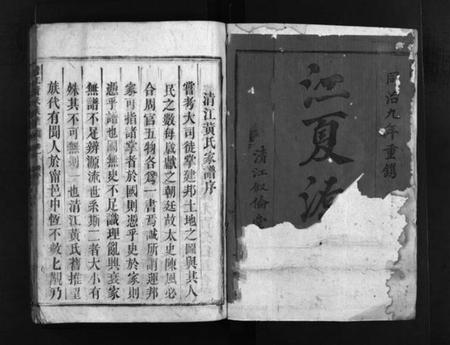 同治九年重鐫
江夏
清江叙倫堂
清江黄氏家譜序
嘗考大司徒掌建邦土地之圖與其人
民之數每歲獻之朝廷故太史陳風必
合周官五物各爲一書焉誠所謂運邦
家可指諸掌者於國則憑乎史於家則
憑乎譜也國無史不足識理亂興衰家
無譜不足辨源流也系斯二者大小有
殊其不可無則一也清江黄氏舊推望
族代有聞人於甯邑中恆不數七觀乃